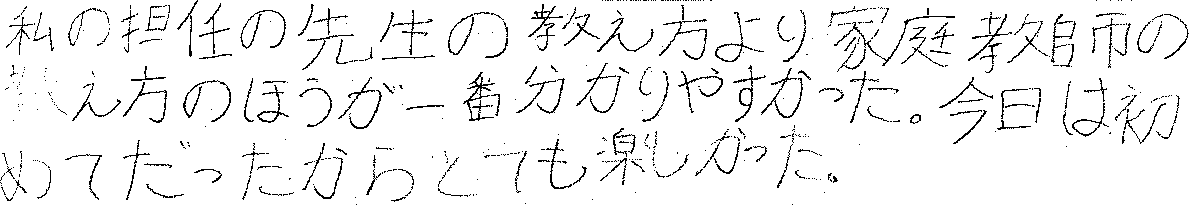 私の担任の先生の教え方より家庭教師の
教え方のほうが一番分かりやすかった。今日は初
めてだったからとても楽しかった。